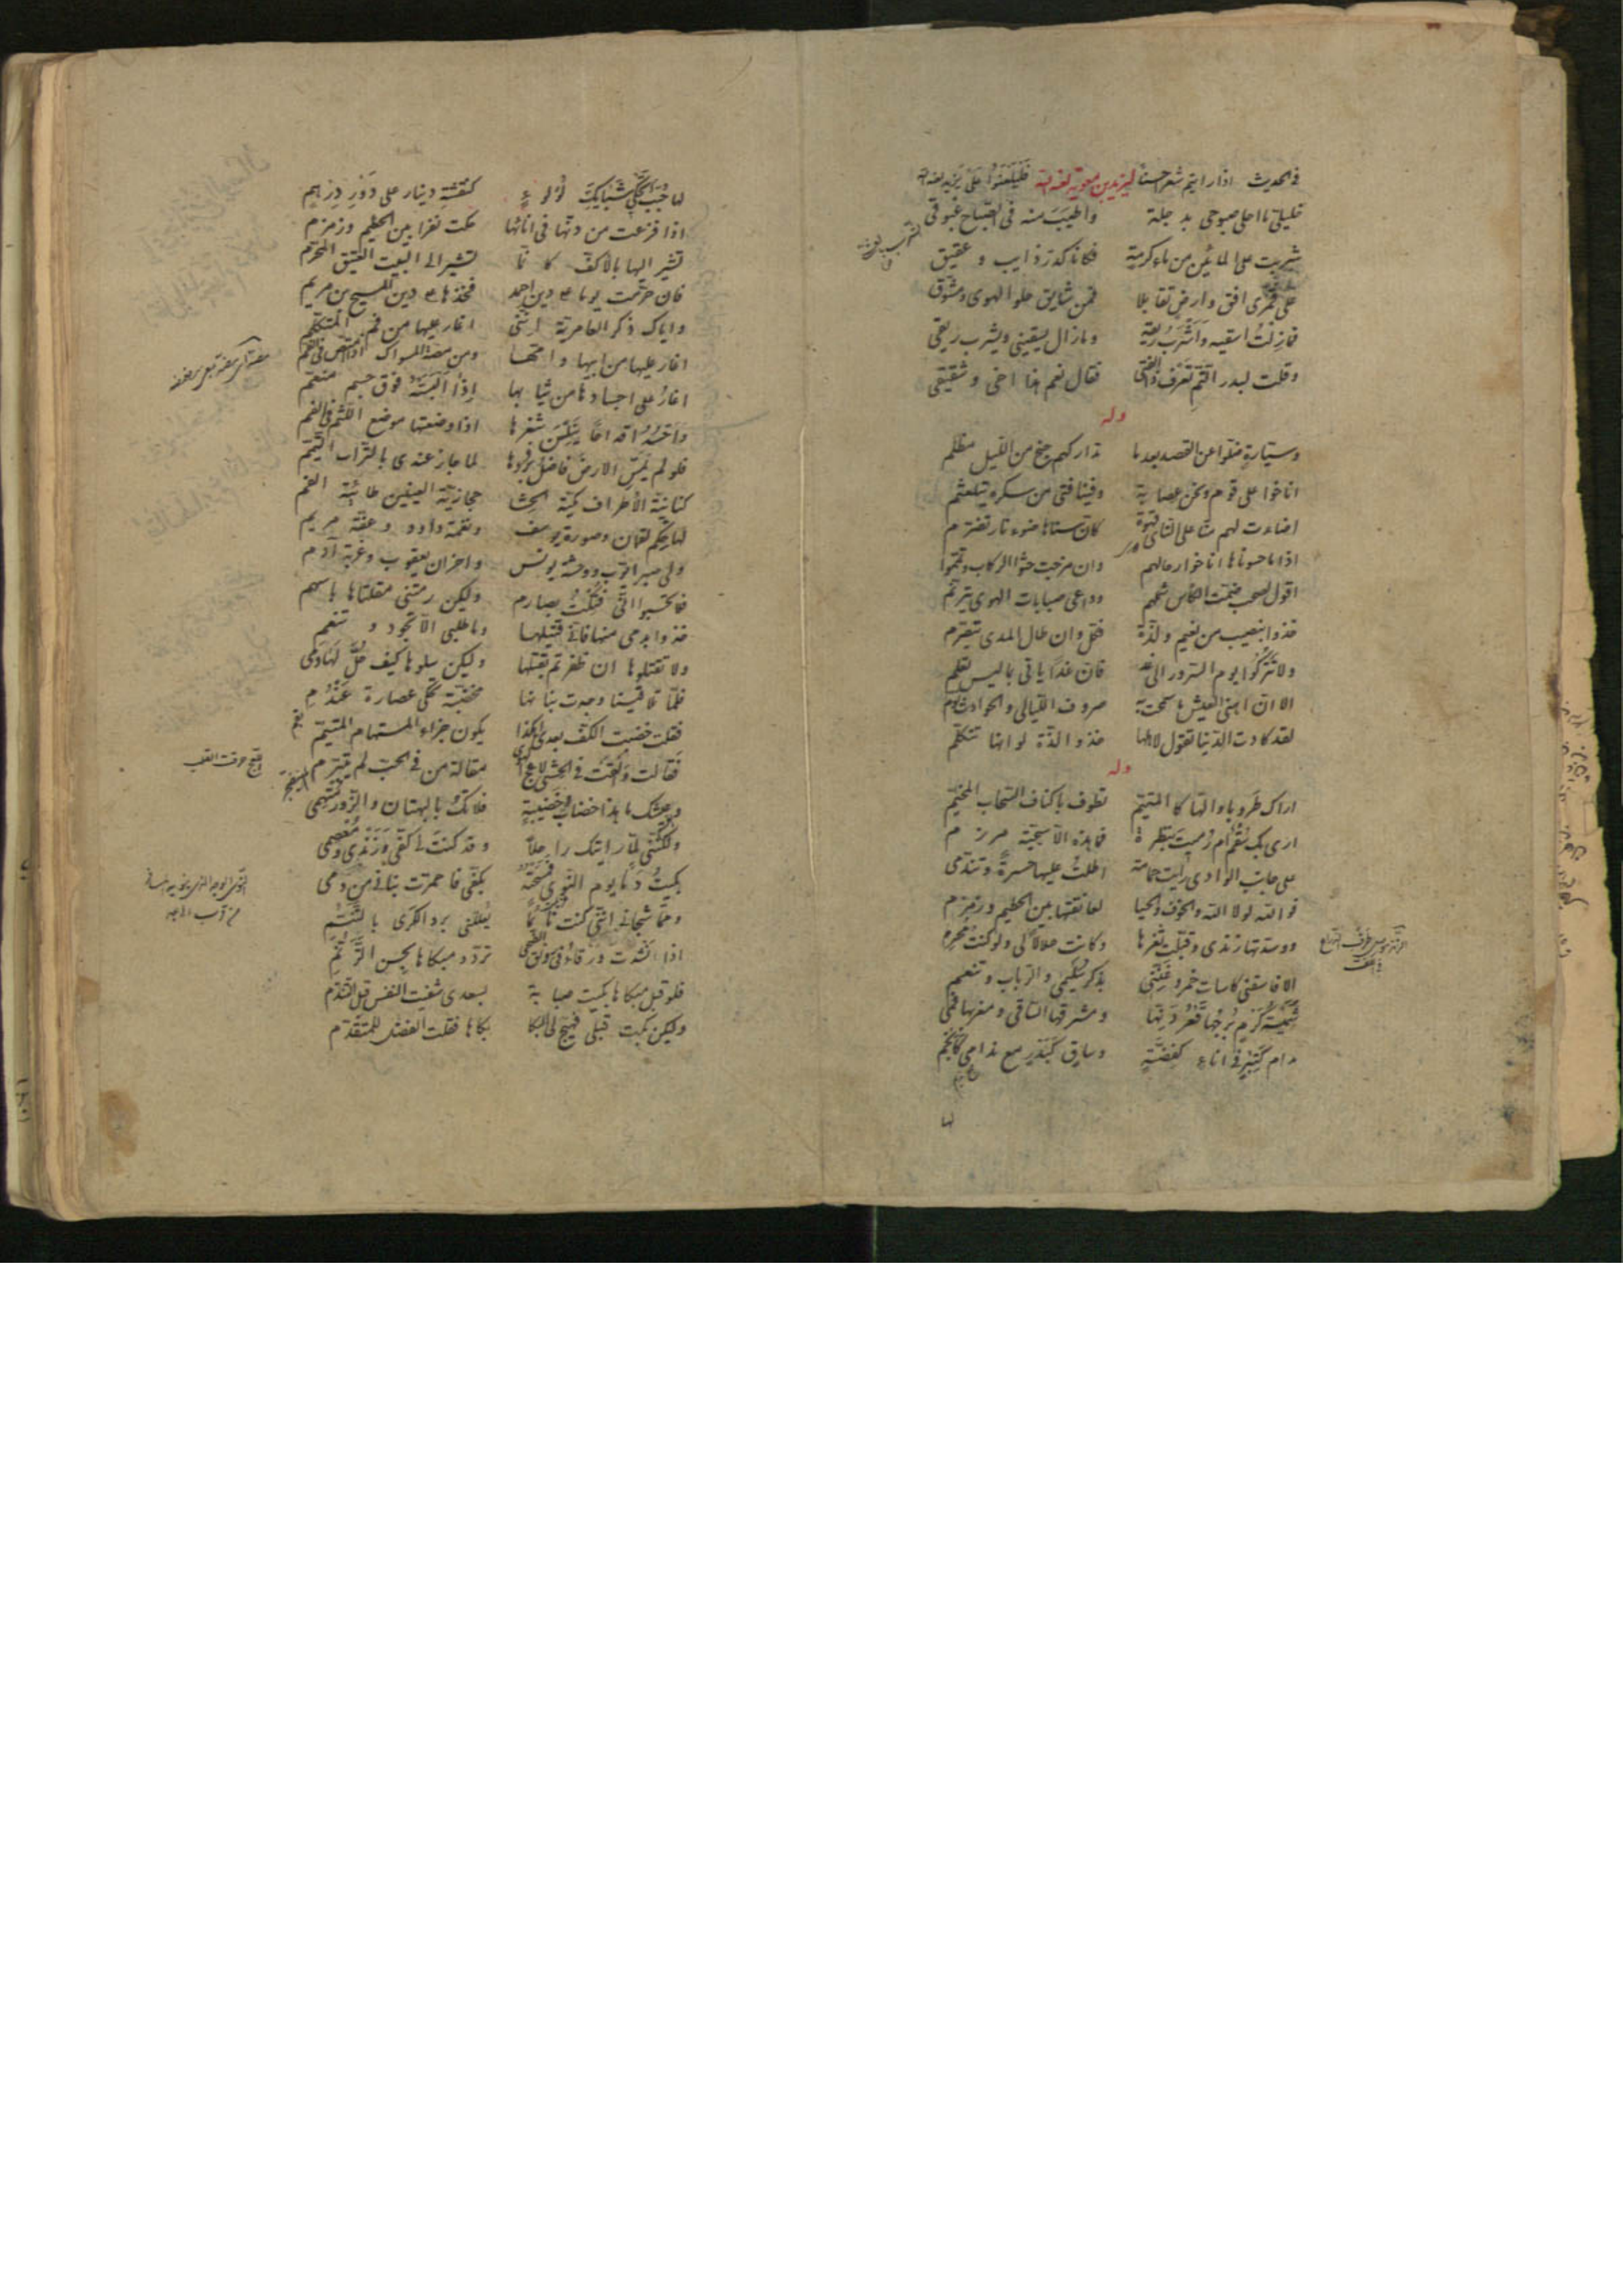 فى الحديث اذا رايتم شعرا حسنا ليزيد بن معوية لعنه الله فليلعنوا على يزيد لعنه الله
خليلىّ ما احلى صبوحى بدجلة واطيب منه فى الصباح غبوقى
شربت على المائين من ماء كرمة فكانا كدرّ ذايب وعقيق
على قمرى افق وارض تقابلا فمن شايق حلو الهوى ومشوق
فما زلت اسقيه واشرب ريقه وما زال يسقينى ويشرب ريقى
وقلت لبدر التمّ تعرف ذا الفتى فقال نعم هذا اخى وشقيقى
وله
وسيّارة ضلّوا عن القصد بعد ما تداركهم جنح من الليل مظلم
اناخوا على قوم ونحن عصابة وفينا فتى من سكره يتلعثم
اضاءت لهم منّا على النّاى قهوة كانّ سناها ضوء نار تضرّم
اذا ما حسوناها اناخوا رحالهم وان مزجت حثّوا الركاب ويمّموا
اقول لصحب ضمّت الكأس شملهم وداعى صبابات الهوى يترنّم
خذوا بنصيب من نعيم ولذّة فكلّ وان طال المدى يتصرّم
ولا تتركوا يوم السّرور الى غد فانّ غدا ياتى بما ليس يعلم
الا انّ اهنى العيش ما سمحت به صروف اللّيالى والحوادث نوّم
لقد كادت الدّنيا تقول لاهلها خذوا لذّة لو انها تتكلّم
وله
اراك طروبا والها كالمتيّم تطوف باكناف السّحاب المخيّم
ارى بك سقم ام رميت بنظرة فما هذه الّا سجيّة مرزم
على جانب الوادى رايت حمامة اطلت عليها حسرة وتندّمى
فو الله لولا الله والخوف والحيا لعانقتها بين الحطيم وزمزم
ووسدتها زندى وقبلت ثغرها وكانت حلالا لى ولو كنت محرم
الا فاسقنى كاسات خمر وغنّنى بذكر سليمى والرّباب وتنعّم
شميسة كرم برجها قعر دنّها ومشرقها السّاقى ومغربها فمى
مدام كتبر فى اناء كفضّة وساق كبدر مع ندامى كانجم
لها
لها حبب شبابيك لؤلوء كنقشة دينار على دور درهم
اذا فزعت من دنّها فى انائها حكت نفرا بين الحطيم وزمزم
تشير اليها بالاكف كانّما تشير الى البيت العتيق المحرّم
فان حرّمت يوما على دين احمد فخذها على دين المسيح بن مريم
واياك ذكر العامرية انّنى اغار عليها من فم المتكلّم
اغار عليها من ابيها وامّها ومن مضغة المسواك فى الفم
اغار على اجسادها من ثيابها اذا البسته فوق جسم منعّم
واحسد اقداحا يقبّلن ثغرها اذا وضعتها موضع اللّثم فى الفم
فلو لم يمسّ الارض فاضل بردها لما جاز عندى بالتّراب التّيمّم
كنانيّة الأطراف مكّيّة الحشا حجازيّة العينين طائيّة الفم
لها حكم لقمان وصورة يوسف ونغمة داود وعفّة مريم
ولى صبر ايّوب ووحشة يونس واحزان يعقوب وغربة آدم
فلا تحسبوا انّى قتلت بصارم ولكن رمتنى مقلتاها باسهم
خذوا بدمى منها فانّى قتيلها وما طلبى الّا تجود وتنعم
ولا تقتلوها ان ظفرتم بقتلها ولكن سلوها كيف حلّ لها دمى
فلمّا تلاقينا وجدت بنانها مخضّبة تحكى عصارة عندم
فقلت خضبت الكف بعدى هكذا يكون جزاء المستهام المتيّم
فقالت والقت فى الحشى لاعج مقالة من فى الحبّ لم يتبرّم
وعيشك ما هذا خضاب خضبته فلا تك بالبهتان والزّور متّهمى
ولكنّنى لمّا رايتك راحلا وقد كنت لى كفّى وزندى ومعصمى
بكيت دما يوم النّوى فمسحته بكفّى فاحمرّت بنانى من دمى
وممّا شجانى انّنى كنت نائما يعللنى برد الكرى بالتّنسّم
فلو قبل مبكاها بكيت صبابة بسعدى شفيت النفس قبل التندّم
ولكن بكت قبلى فهيّج لى البكا بكاها فقلت الفضل للمتقدّم